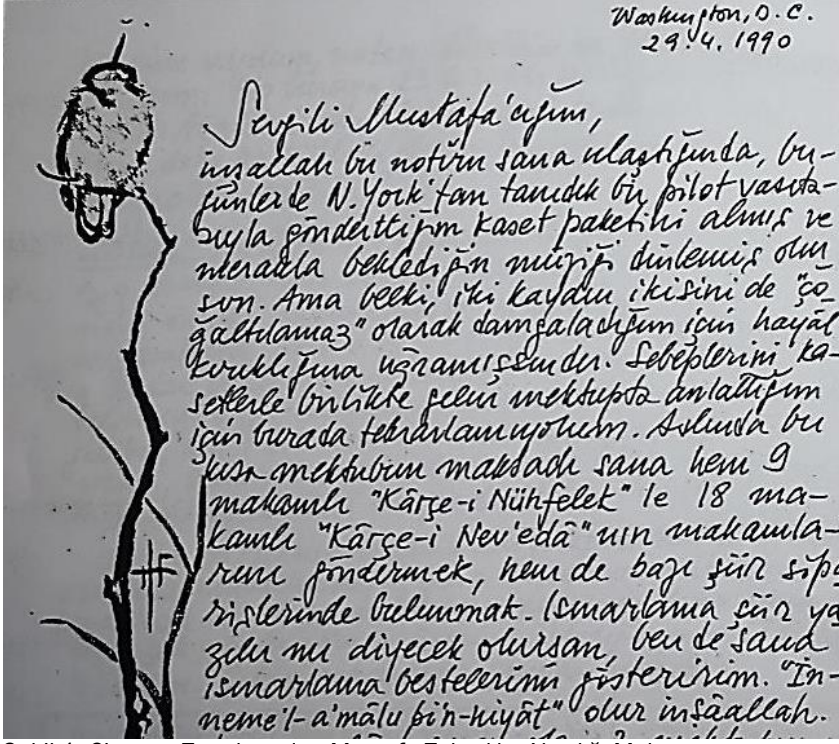 Washington, D.C.
29.4.1990
Sevgili Mustafa'cığım,
inşallah bu notum sana ulaştığında, bu-
günlerde N.York'tan tanıdık bir pilot vasıta-
sıyla gönderttiğim kaset paketini almış ve
merakla beklediğin müziği dinlemiş olur
sun. Ama belki, iki kaydın ikisini de "ço
ğaltılamaz" olarak damgaladığım için hayâl
kırıklığına uğramışsındır. Sebeplerini ka-
setlerle birlikte gelen mektupta anlattığım
için burada tekrarlamıyorum. Aslında bu
kısa mektubun maksadı sana hem 9
makamlı "Kârçe-i Nühfelek" le 18 ma-
kamlı "Kârçe-i Nev'edâ" nın makamla-
rını göndermek, hem de bazı şiir sipa
rişlerinde bulunmak. Ismarlama şiir ya
zılır mı diyecek olursan, ben de sana
ısmarlama bestelerimi gösteririm. "İn-
neme'l-a'mâlu bi'n-niyât" olur inşâallah.